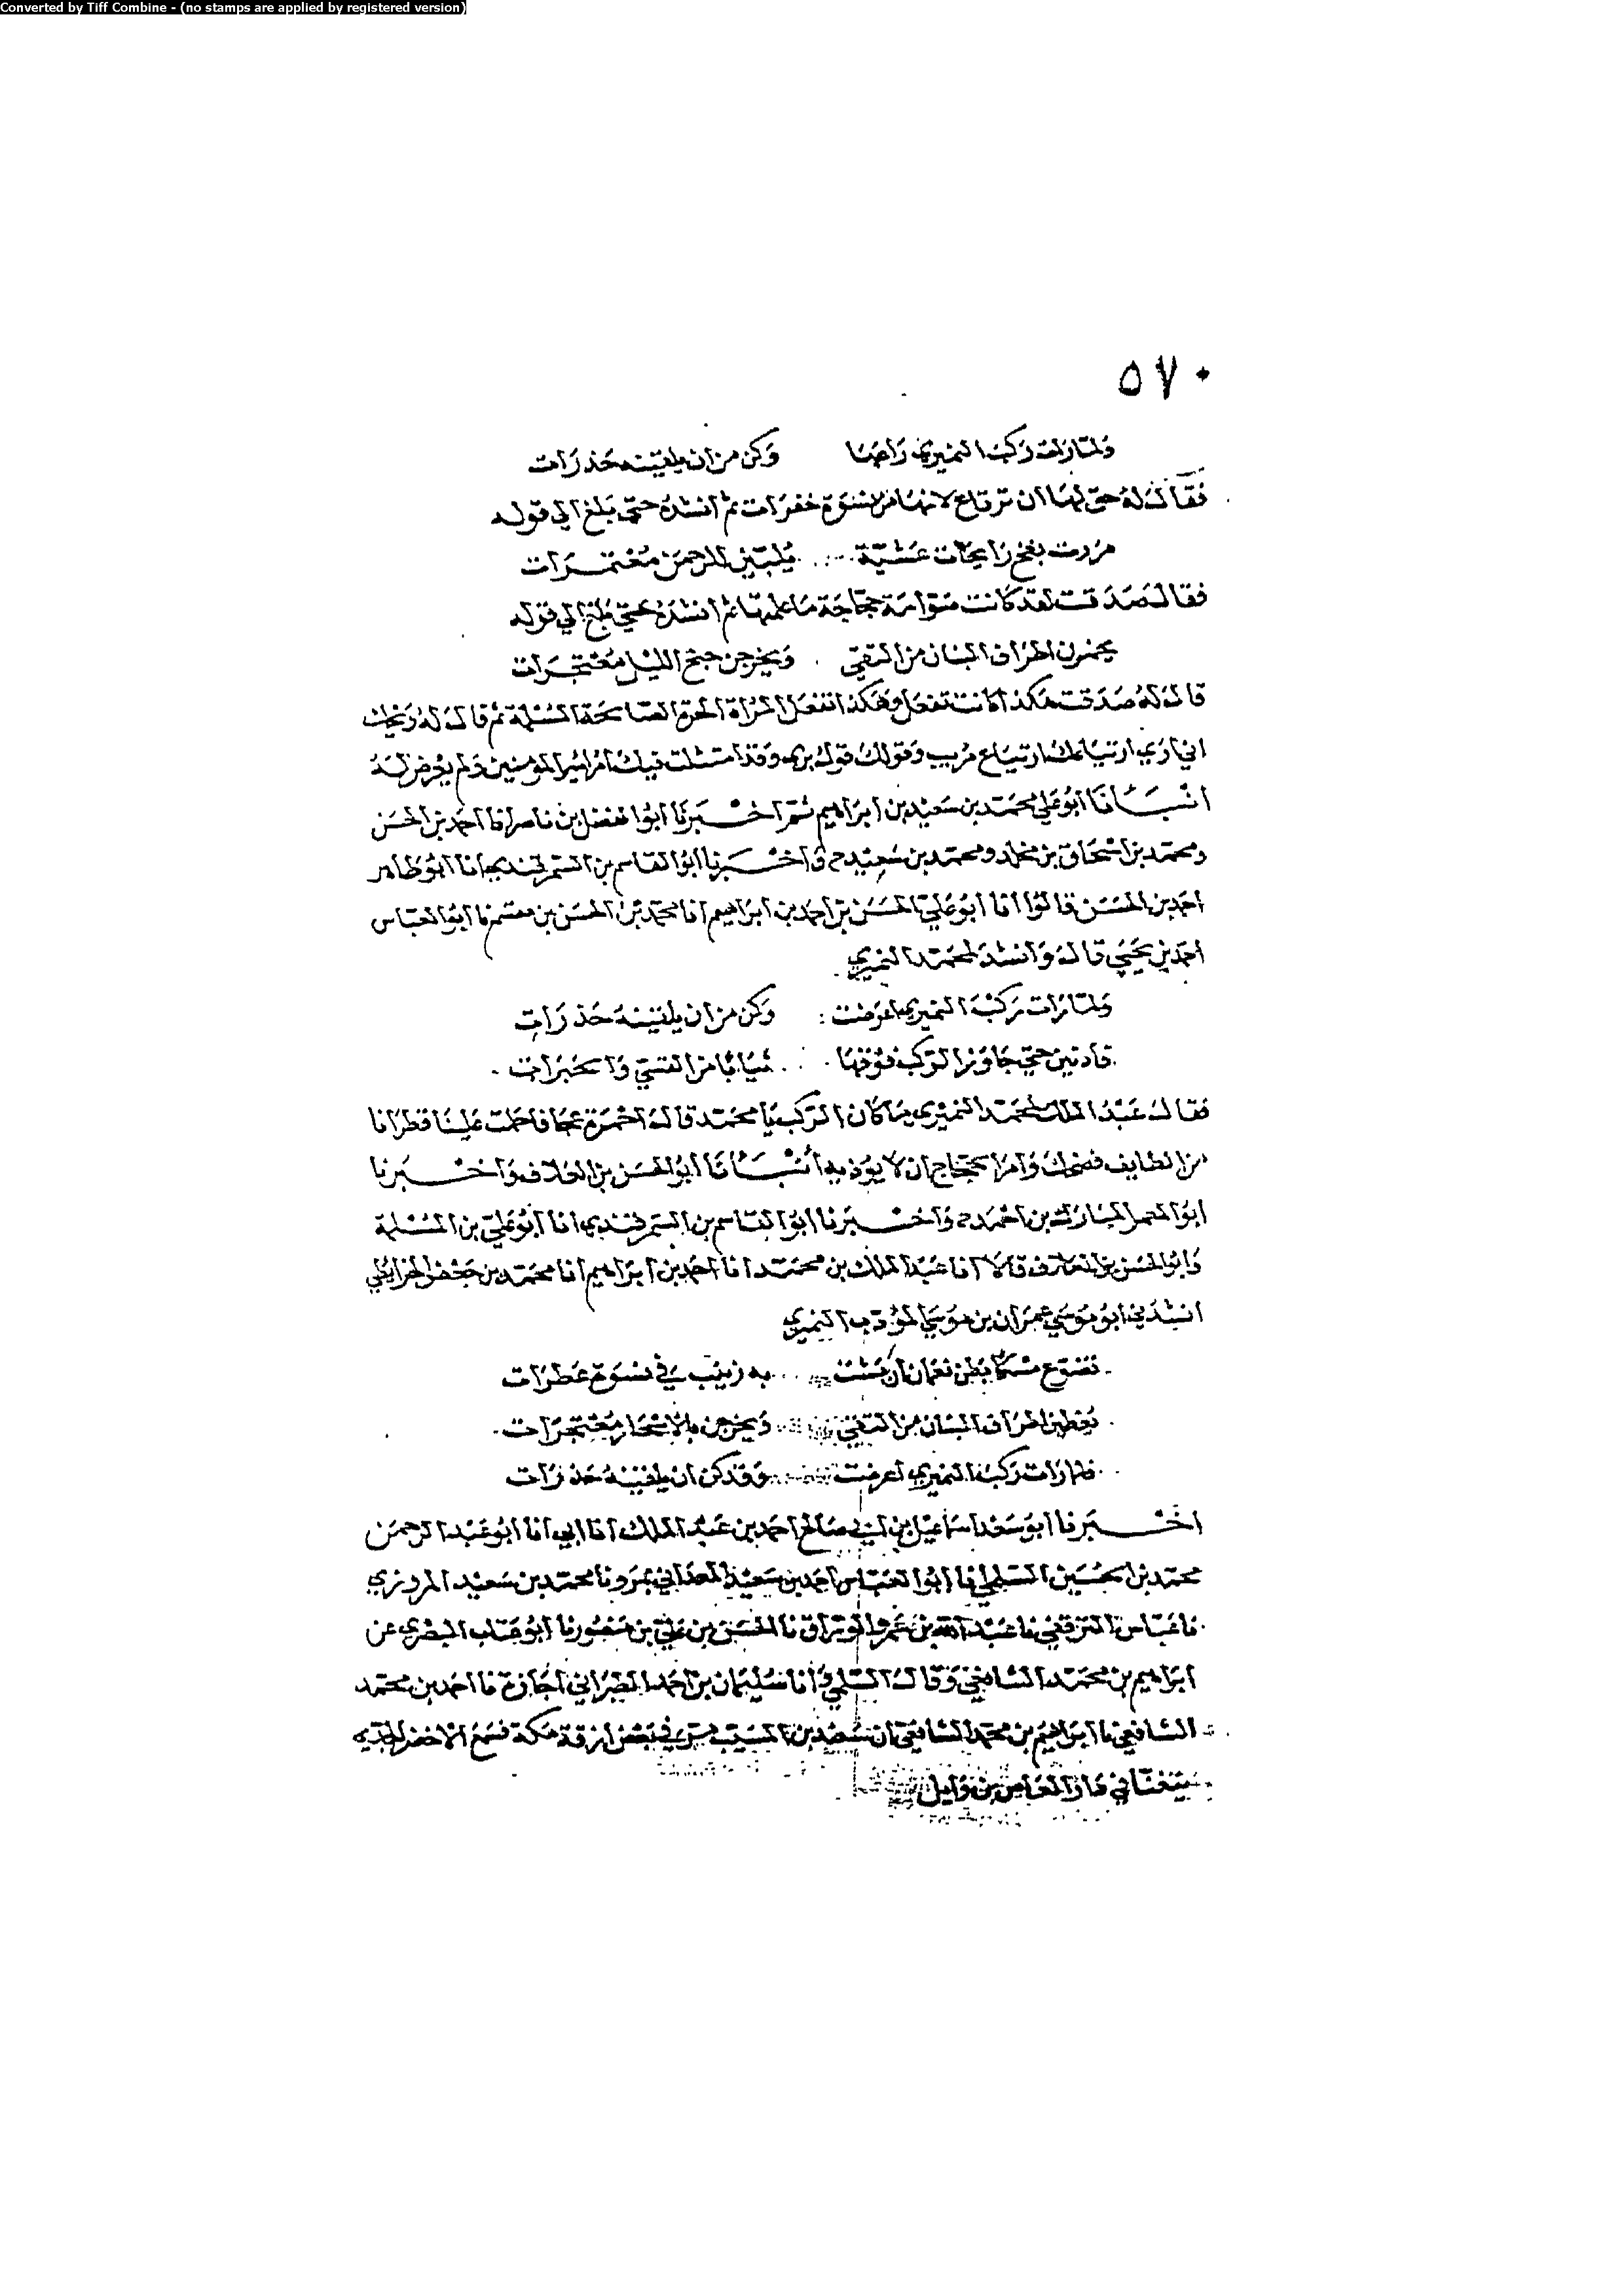 Converted by Tiff Combine - (no stamps are applied by registered version)
٥٧٠
ولما رات ركب النميري راعها وكن من ان يلقينه حذرات
فقال له حق لها ان ترتاع لانها من نسوة خفرات ثم انشده حتى بلغ الي قوله
مررت بفخ رايحات عشية يلبين للرحمن معتمرات
فقال صدقت لقد كانت صوامة حجاجة ما علمتها ثم انشده حتي بلغ الي قوله
يخمرن اطراف البنان من التقي ويخرجن جنح الليل معتجرات
قال له صدقت هكذا كانت تفعل وهكذا تفعل المراة الحرة الصالحة المسلمة ثم قال له ويحك
اني اري ارتياعك ارتياع مريب وقولك قول بري وقد امتثلت فيك امر امير المومنين ولم يعرض له
انبانا ابو علي محمد بن سعيد بن ابراهيم ثم اخبرنا ابو الفضل بن ناصر انا احمد بن الحسن
ومحمد بن اسحاق بن مخلد ومحمد بن سعيد ح واخبرنا ابو القاسم بن السمرقندي انا ابو طاهر
احمد بن الحسن قالوا انا ابو علي الحسن بن احمد بن ابراهيم انا محمد بن الحسن بن مقسم نا ابو العباس
احمد بن يحيي قال وانشد لمحمد النميري
ولما رات ركب النميري اعرضت وكن من ان يلقينه حذرات
فادنين حتي جاوز الركب فوقها ثيابا من القسي والحبرات
فقال عبد الملك لمحمد النميري ما كان الركب يا محمد قال احمرة عجافا حملت علينا قطرانا
من الطايف فضحك وامر الحجاج ان لا يوذيه انبانا ابو الحسن بن العلاف واخبرنا
ابو المعمر المبارك بن احمد ح واخبرنا ابو القاسم بن السمرقندي انا ابو علي بن المسلمة
وابو الحسن بن العلاف قالا انا عبد الملك بن محمد انا احمد بن ابراهيم انا محمد بن جعفر الخرايطي
انشدني ابو موسي عمران بن موسي المودب النميري
تضوع مسكا بطن نعمان ان مشت به زينب في نسوة عطرات
يغطين اطراف البنان من التقي ويخرجن بالاسحار معتجرات
فلما رات ركب النميري اعرضت وقد كن ان يلقينه حذرات
اخبرنا ابو سعد اسماعيل بن ابي صالح احمد بن عبد الملك انا ابي انا ابو عبد الرحمن
محمد بن الحسين السلمي انا ابو العباس احمد بن سعيد المعداني بمرو نا محمد بن سعيد المروزي
نا عباس الترقفي نا عبد الله بن عمرو الوراق نا الحسن بن علي بن منصور نا ابو عتاب البصري عن
ابراهيم بن محمد الشافعي وقال السلمي وانا سليمان بن احمد الطبراني اجازة نا احمد بن محمد
الشافعي نا ابراهيم بن محمد الشافعي ان سعيد بن المسيب مر في بعض ازقة مكة فسمع الاخضر الجدي
يتغنا في دار العاص بن وايل